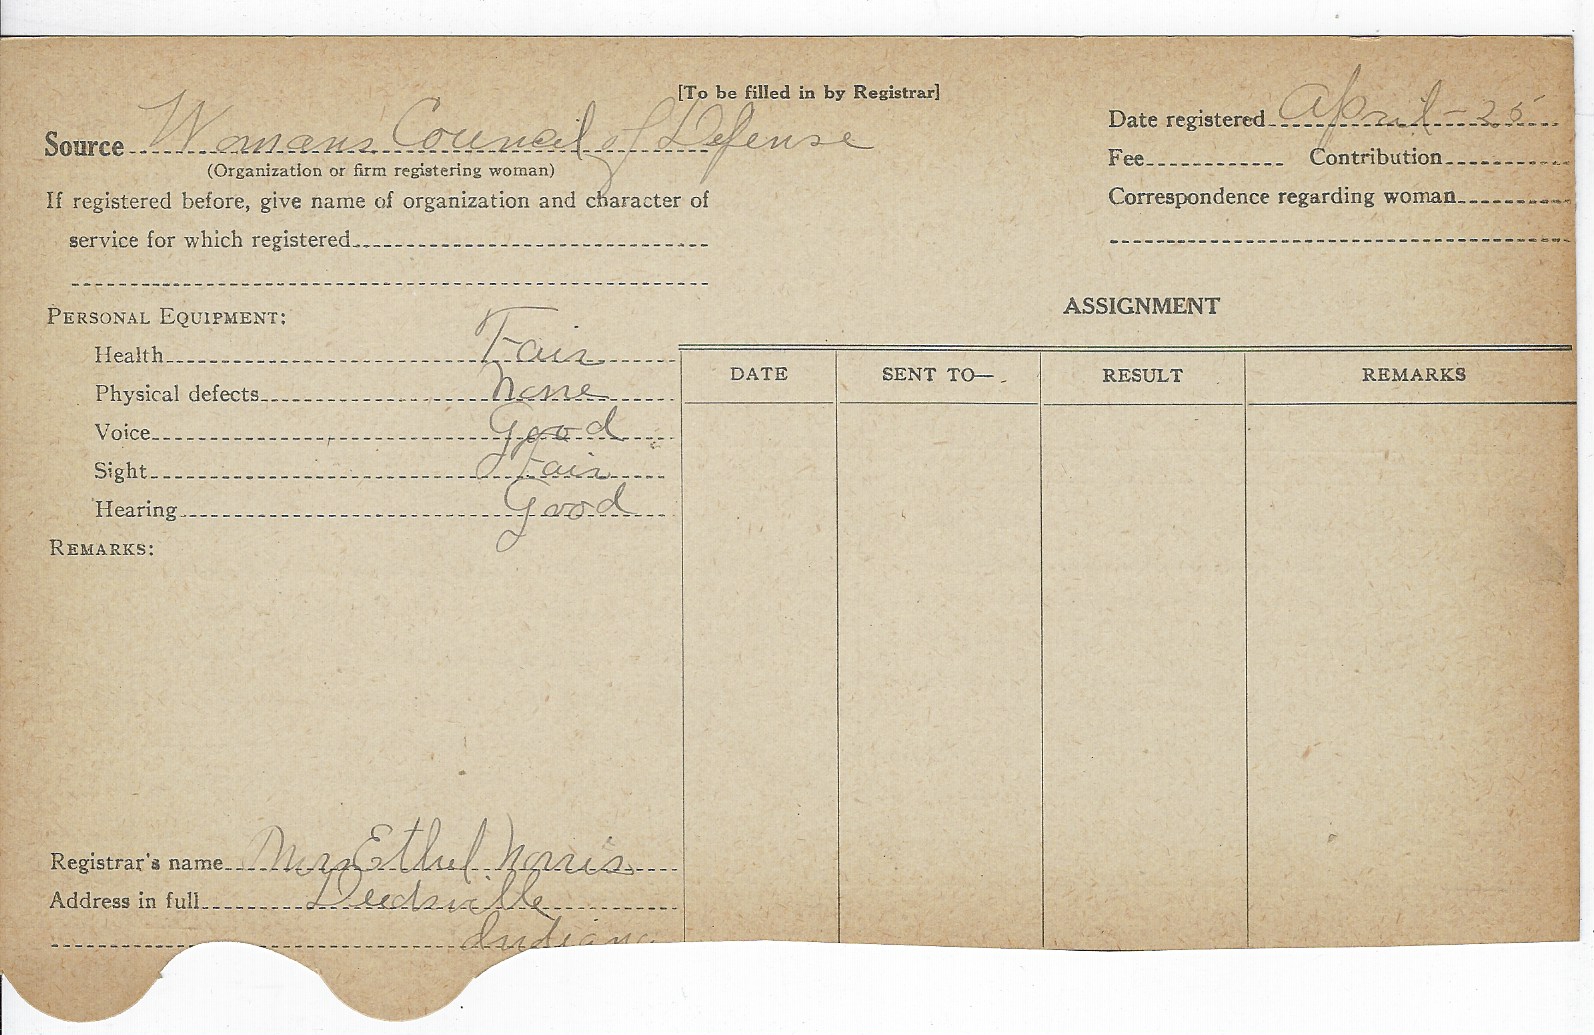 [To be filled in by Registrar]
Source Womans Council of Defense
(Organization or firm registering woman)
If registered before, give name of organization and character of
service for which registered
Date registered April-25
Fee Contribution
Correspondence regarding woman
PERSONAL EQUIPMENT:
Health Fair
Physical defects None
Voice Good
Sight Fair
Hearing Good
REMARKS:
ASSIGNMENT
DATE SENT TO— RESULT REMARKS
Registrar's name Mrs Ethel Norris
Address in full Deedsville
Indiana